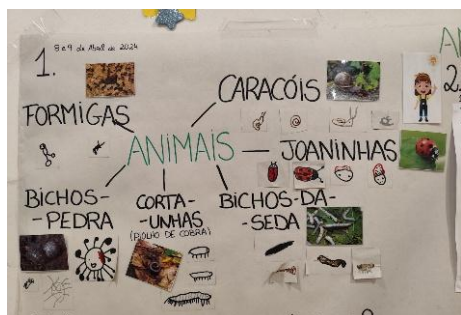 1.
8 e 9 de Abril de 2024
FORMIGAS
CARACÓIS
ANIMAIS
JOANINHAS
BICHOS-
-PEDRA
CORTA-
-UNHAS
(PIOLHO DE COBRA)
BICHOS-DA-
-SEDA
2.